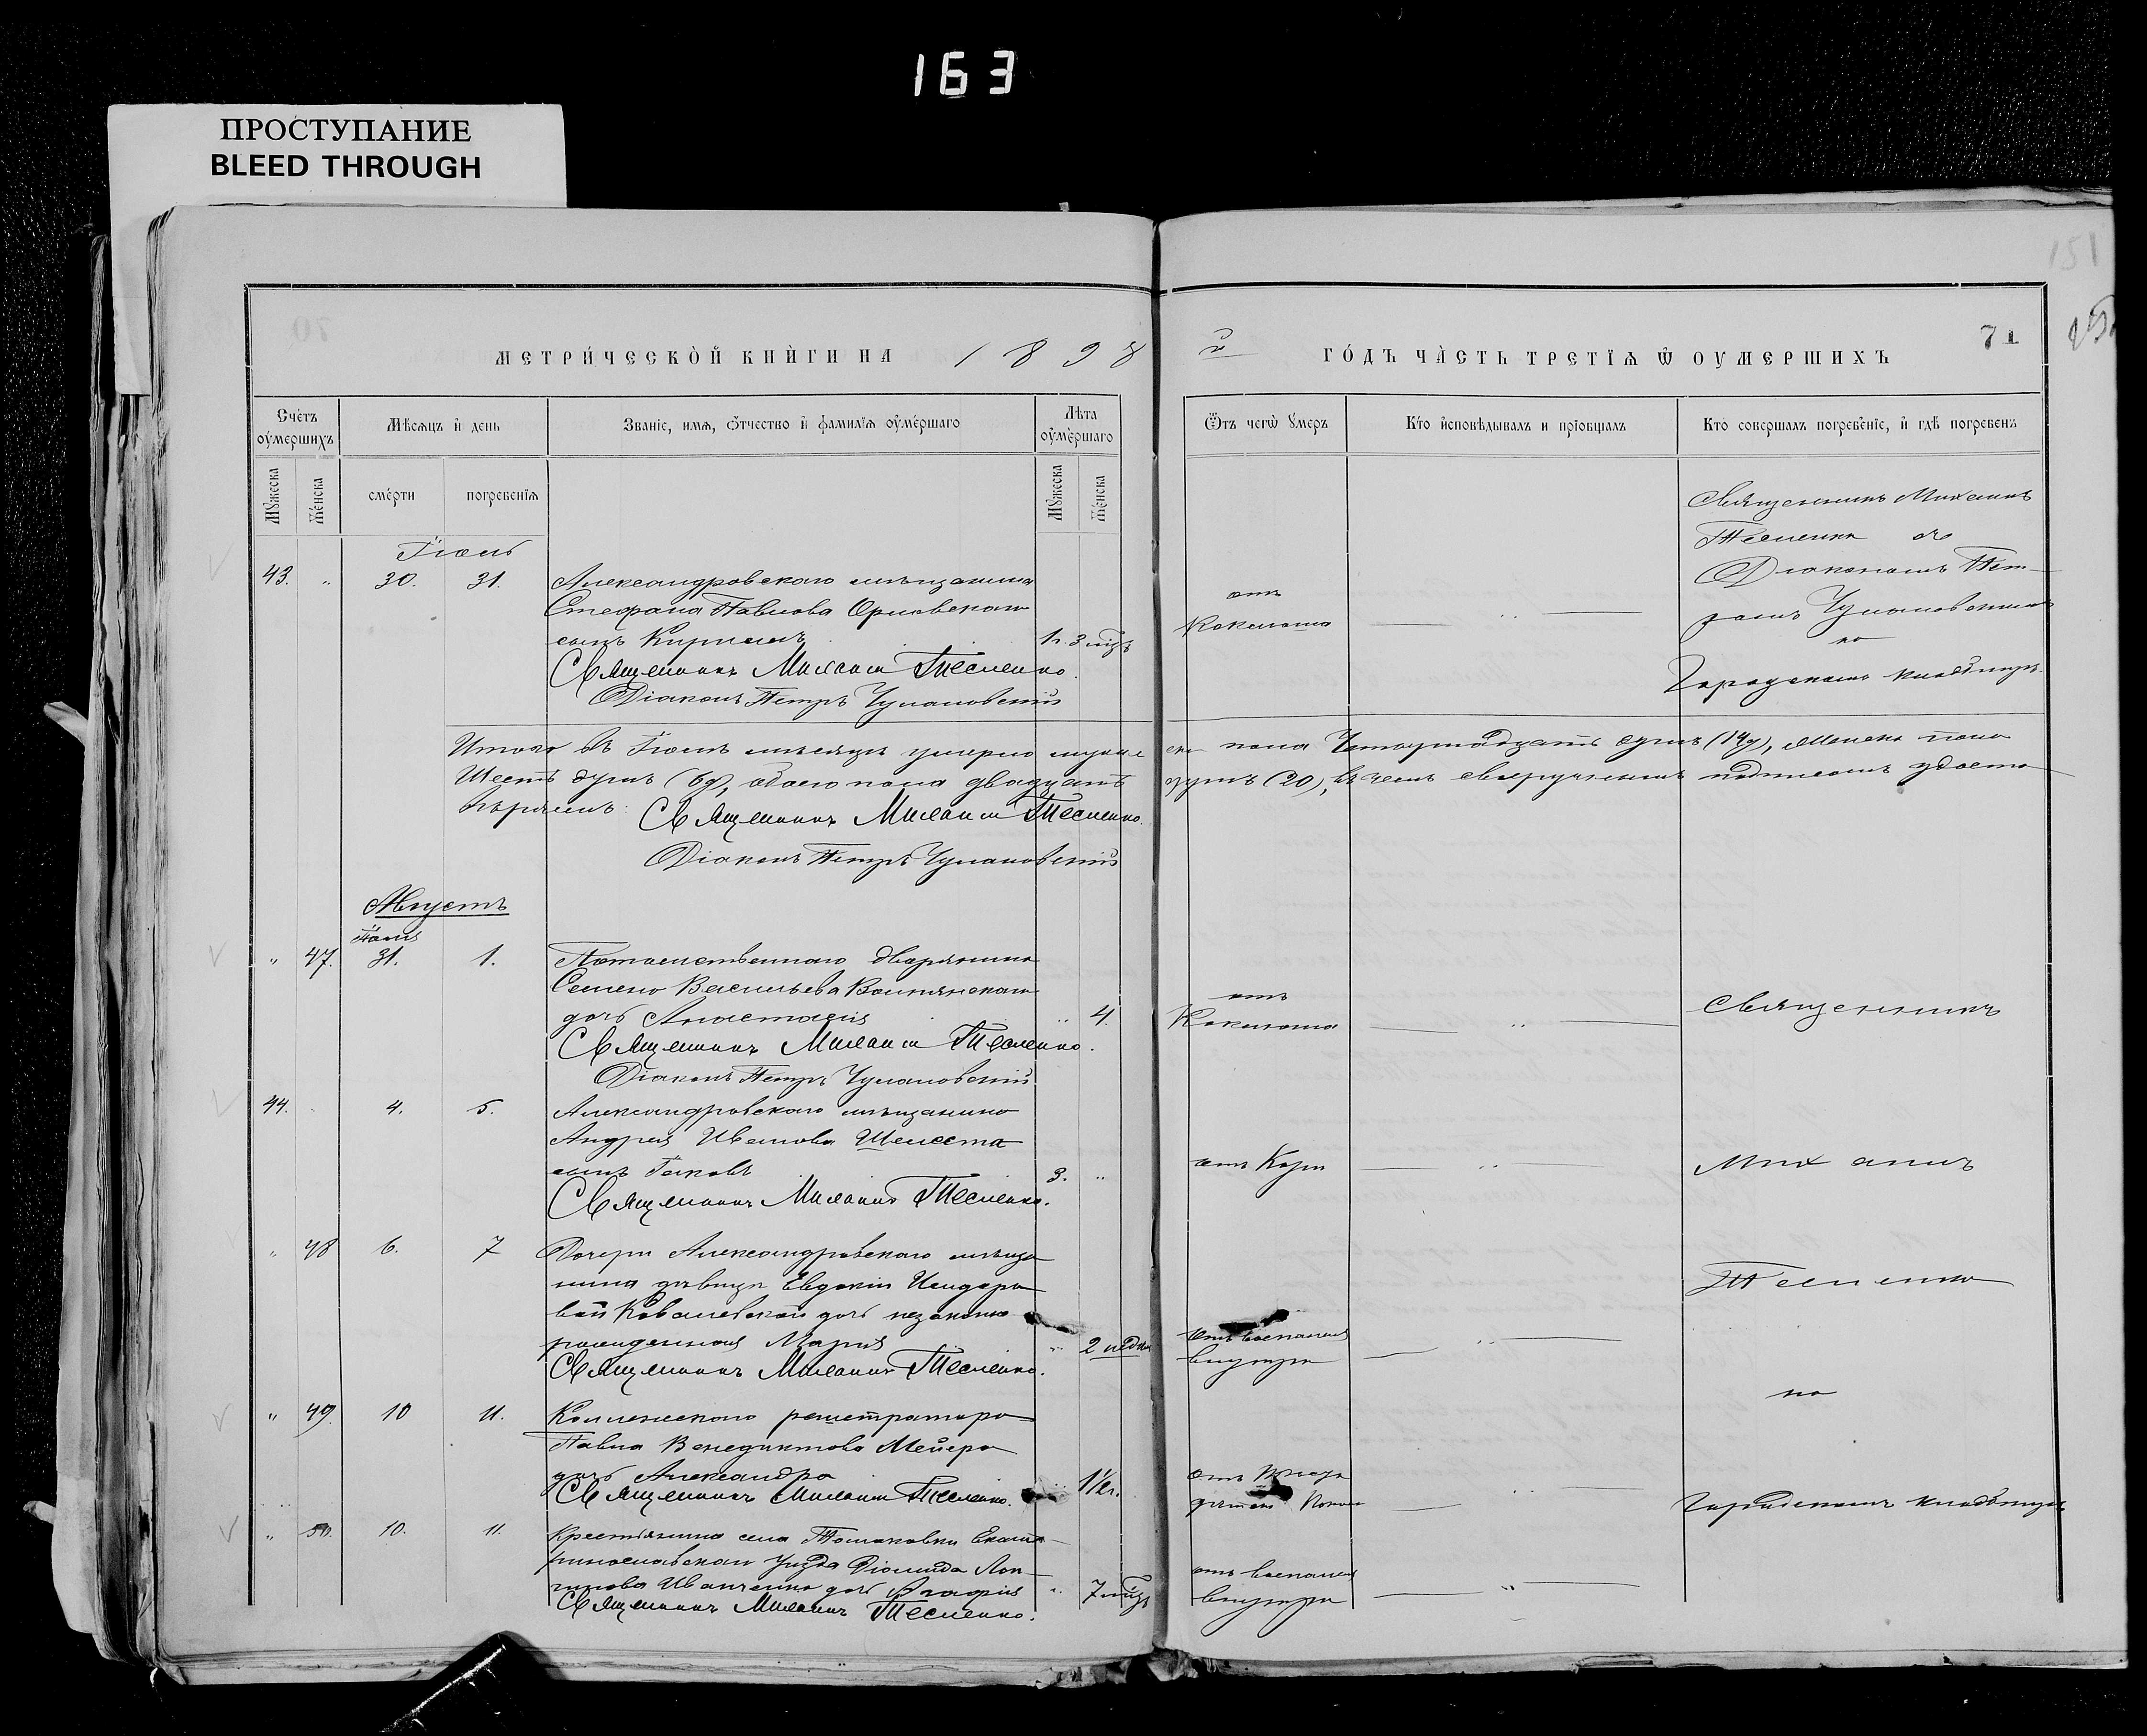 163
ПРОСТУПАНИЕ
BLEED THROUGH
151
71
МЕТРИ́ЧЕСКО̀Й КНЍГИ НА 1898 г
ГО́ДЪ ЧА̀СТЬ ТРЕТІѦ Ѿ ОУМЕРШИХЪ
Сче́тъ оу҆ме́ршихъ
Мѣ́сѧцъ и҆ день
Зва́нїе, имѧ, ѻ҆́тчество и҆ фами́лїѧ оу҆ме́ршаго
Лѣ́та оу҆ме́ршаго
Ѿтъ чегѡ̀ у҆́меръ
Кто̀ и҆сповѣ́дывалъ и прїѡбща́лъ
Кто̀ соверша́лъ погребе́нїе, и҆ гдѣ̀ погребе́нъ
Мꙋ́жеска
Же́нска
сме́рти
погребе́нїѧ
Мꙋ́жеска
Же́нска
Іюль
43. " 30. 31. Александровскаго мѣщанина
Стефана Павлова Орловскаго
сынъ Кириллъ 1 г. 3 мцъ
Священникъ Михаилъ Тесленко.
Діаконъ Петръ Чулановскій
отъ
Коклюша
Священникъ Михаилъ
Тесленко съ
Діакономъ Пет-
ромъ Чулановскимъ
на
Городскомъ кладбищѣ
Итого въ Іюлѣ мѣсяцѣ умерло мужеска пола Четырнадцать душъ (14), Женска пола
Шесть душъ (6), обоего пола двадцать душъ (20), въ чемъ своеручнымъ подписомъ удосто-
вѣряемъ: Священникъ Михаилъ Тесленко.
Діаконъ Петръ Чулановскій
Августъ
Іюля
" 47. 31. 1. Потомственнаго дворянина
Семена Васильева Волнянскаго
дочь Анастасія " 4.
Священникъ Михаилъ Тесленко.
Діаконъ Петръ Чулановскій
отъ
Коклюша
Священникъ
44. 4. 5. Александровскаго мѣщанина
Андрея Иванова Шелеста
сынъ Іаковъ 3. "
Священникъ Михаилъ Тесленко.
отъ Кори
Михаилъ
" 48 6. 7 Дочери Александровскаго мѣща-
нина дѣвицы Евдокіи
вой Ковалевской дочь незаконно
рожденная Марія " 2 недѣл
Священникъ Михаилъ Тесленко.
отъ воспаленія
внутри
Тесленко
на
" 49. 10 11. Коллежскаго регистратора
Павла Венедиктова Мейера
дочь Александра 1½ г.
Священникъ Михаилъ Тесленко.
отъ
Городскомъ кладбищѣ
" 50. 10. 11. Крестьянина села Томаковки Екате-
ринославскаго уѣзда Діомида Лон-
гинова Иванченко дочь Агафія " 7 мцъ
Священникъ Михаилъ Тесленко.
отъ воспаленія
внутри